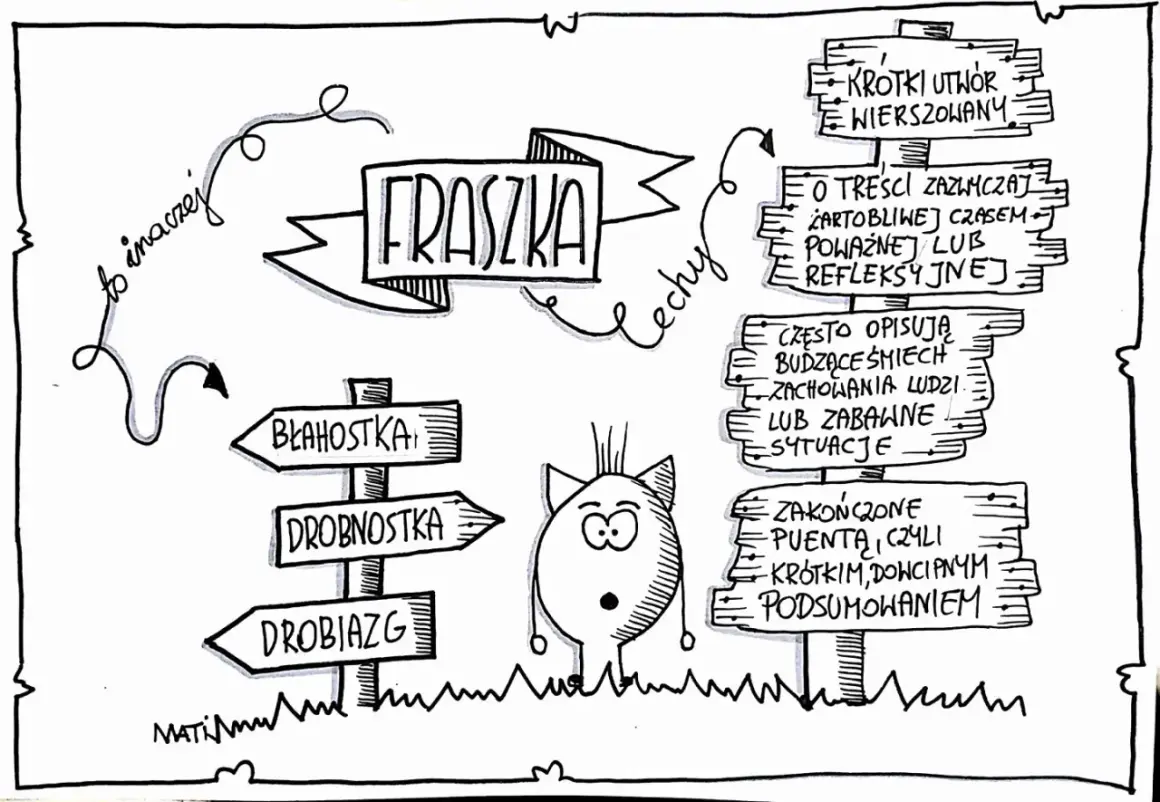 FRASZKA
to inaczej
BŁAHOSTKA
DROBNOSTKA
DROBIAZG
cechy
KRÓTKI UTWÓR
WIERSZOWANY
O TREŚCI ZAZWYCZAJ
ŻARTOBLIWEJ CZASEM
POWAŻNEJ LUB
REFLEKSYJNEJ
CZĘSTO OPISUJĄ
BUDZĄCE ŚMIECH
ZACHOWANIA LUDZI
LUB ZABAWNE
SYTUACJE
ZAKOŃCZONE
PUENTĄ, CZYLI
KRÓTKIM, DOWCIPNYM
PODSUMOWANIEM
MATI